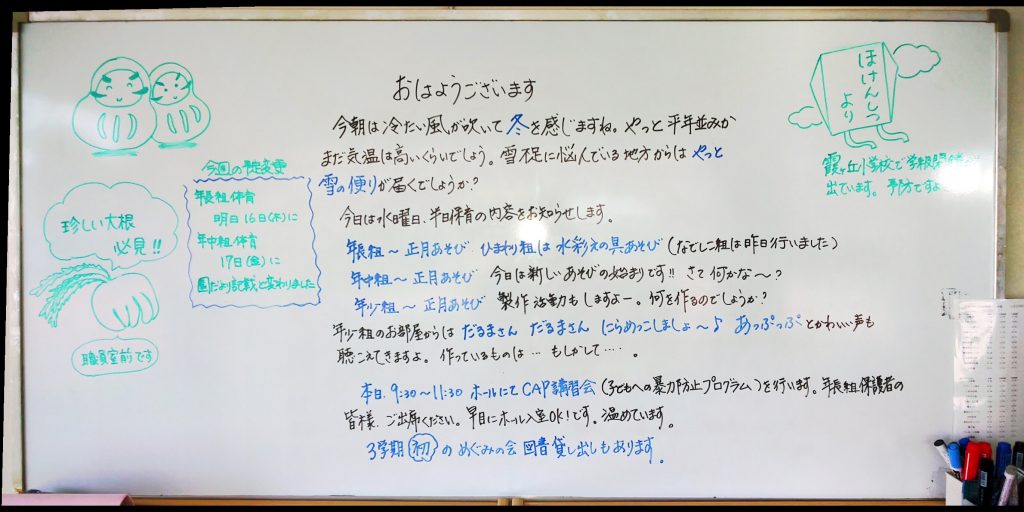 おはようございます
今朝は冷たい風が吹いて冬を感じますね。やっと平年並みか
まだ気温は高いくらいでしょう。雪不足に悩んでいる地方からは やっと
雪の便りが届くでしょうか?
今日は水曜日、半日保育の内容をお知らせします。
年長組〜正月あそび ひまわり組は 水彩えの具あそび(なでしこ組は昨日行いました)
年中組〜正月あそび 今日は新しいあそびの始まりです!! さて何かな〜?
年少組〜正月あそび 製作活動もしますよー。何を作るのでしょうか?
年少組のお部屋からは だるまさん だるまさん にらめっこしましょ〜♪ あっぷっぷ とかわいい声も
聴こえてきますよ。作っているものは… もしかして・・・・。
本日、9:30〜11:30 ホールにて CAP講習会(子どもへの暴力防止プログラム)を行います。年長組保護者の
皆様、ご出席ください。早目にホール入室OK!です。温めています。
3学期 初 の めぐみの会 図書貸し出しもあります。
今週の予定変更
年長組体育
明日16日(木)に
年中組体育
17日(金)に
園だより記載と変わりました
珍しい大根
必見!!
職員室前です
ほけんしつ
より
霞ヶ丘小学校で学級閉鎖
出ています。予防ですよ